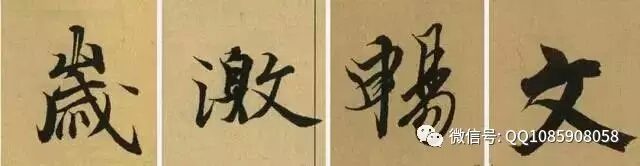 歲激暢文
微信号: QQ1085908058